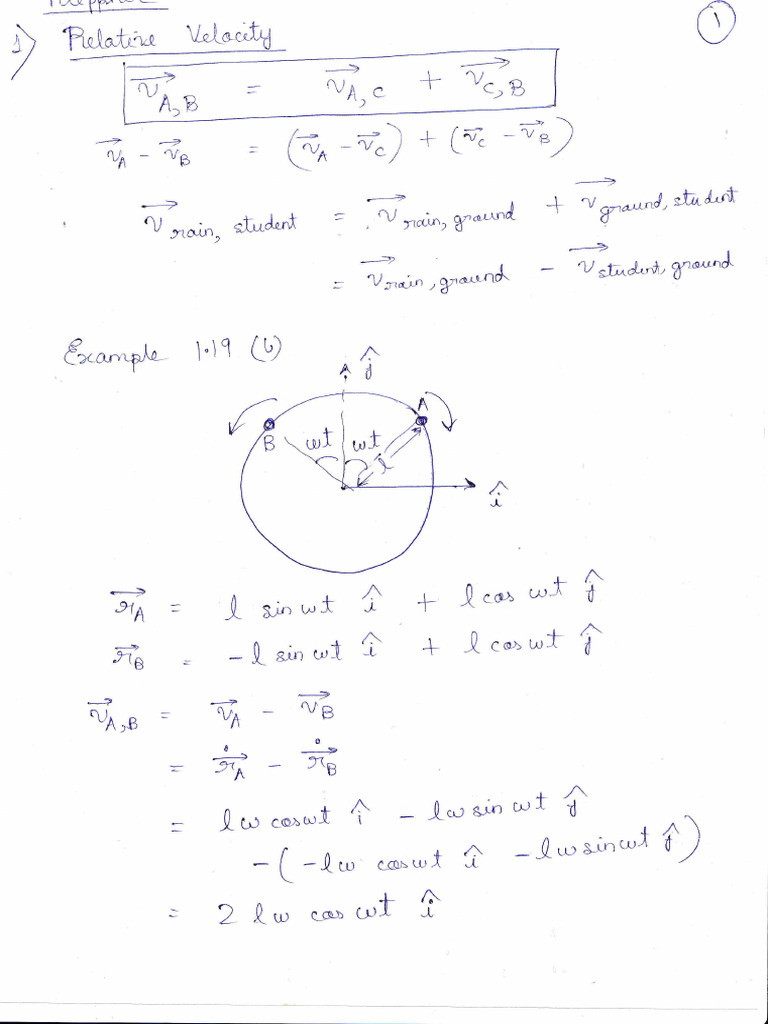 1
1) Relative Velocity
v⃗_A,B = v⃗_A,C + v⃗_C,B
v⃗_A − v⃗_B = (v⃗_A − v⃗_C) + (v⃗_C − v⃗_B)
v⃗_rain, student = v⃗_rain, ground + v⃗_ground, student
= v⃗_rain, ground − v⃗_student, ground
Example 1.19 (b)
ĵ
A
B ωt ωt l
î
r⃗_A = l sin ωt î + l cos ωt ĵ
r⃗_B = −l sin ωt î + l cos ωt ĵ
v⃗_A,B = v⃗_A − v⃗_B
= ṙ⃗_A − ṙ⃗_B
= lω cos ωt î − lω sin ωt ĵ
−(−lω cos ωt î − lω sin ωt ĵ)
= 2 lω cos ωt î